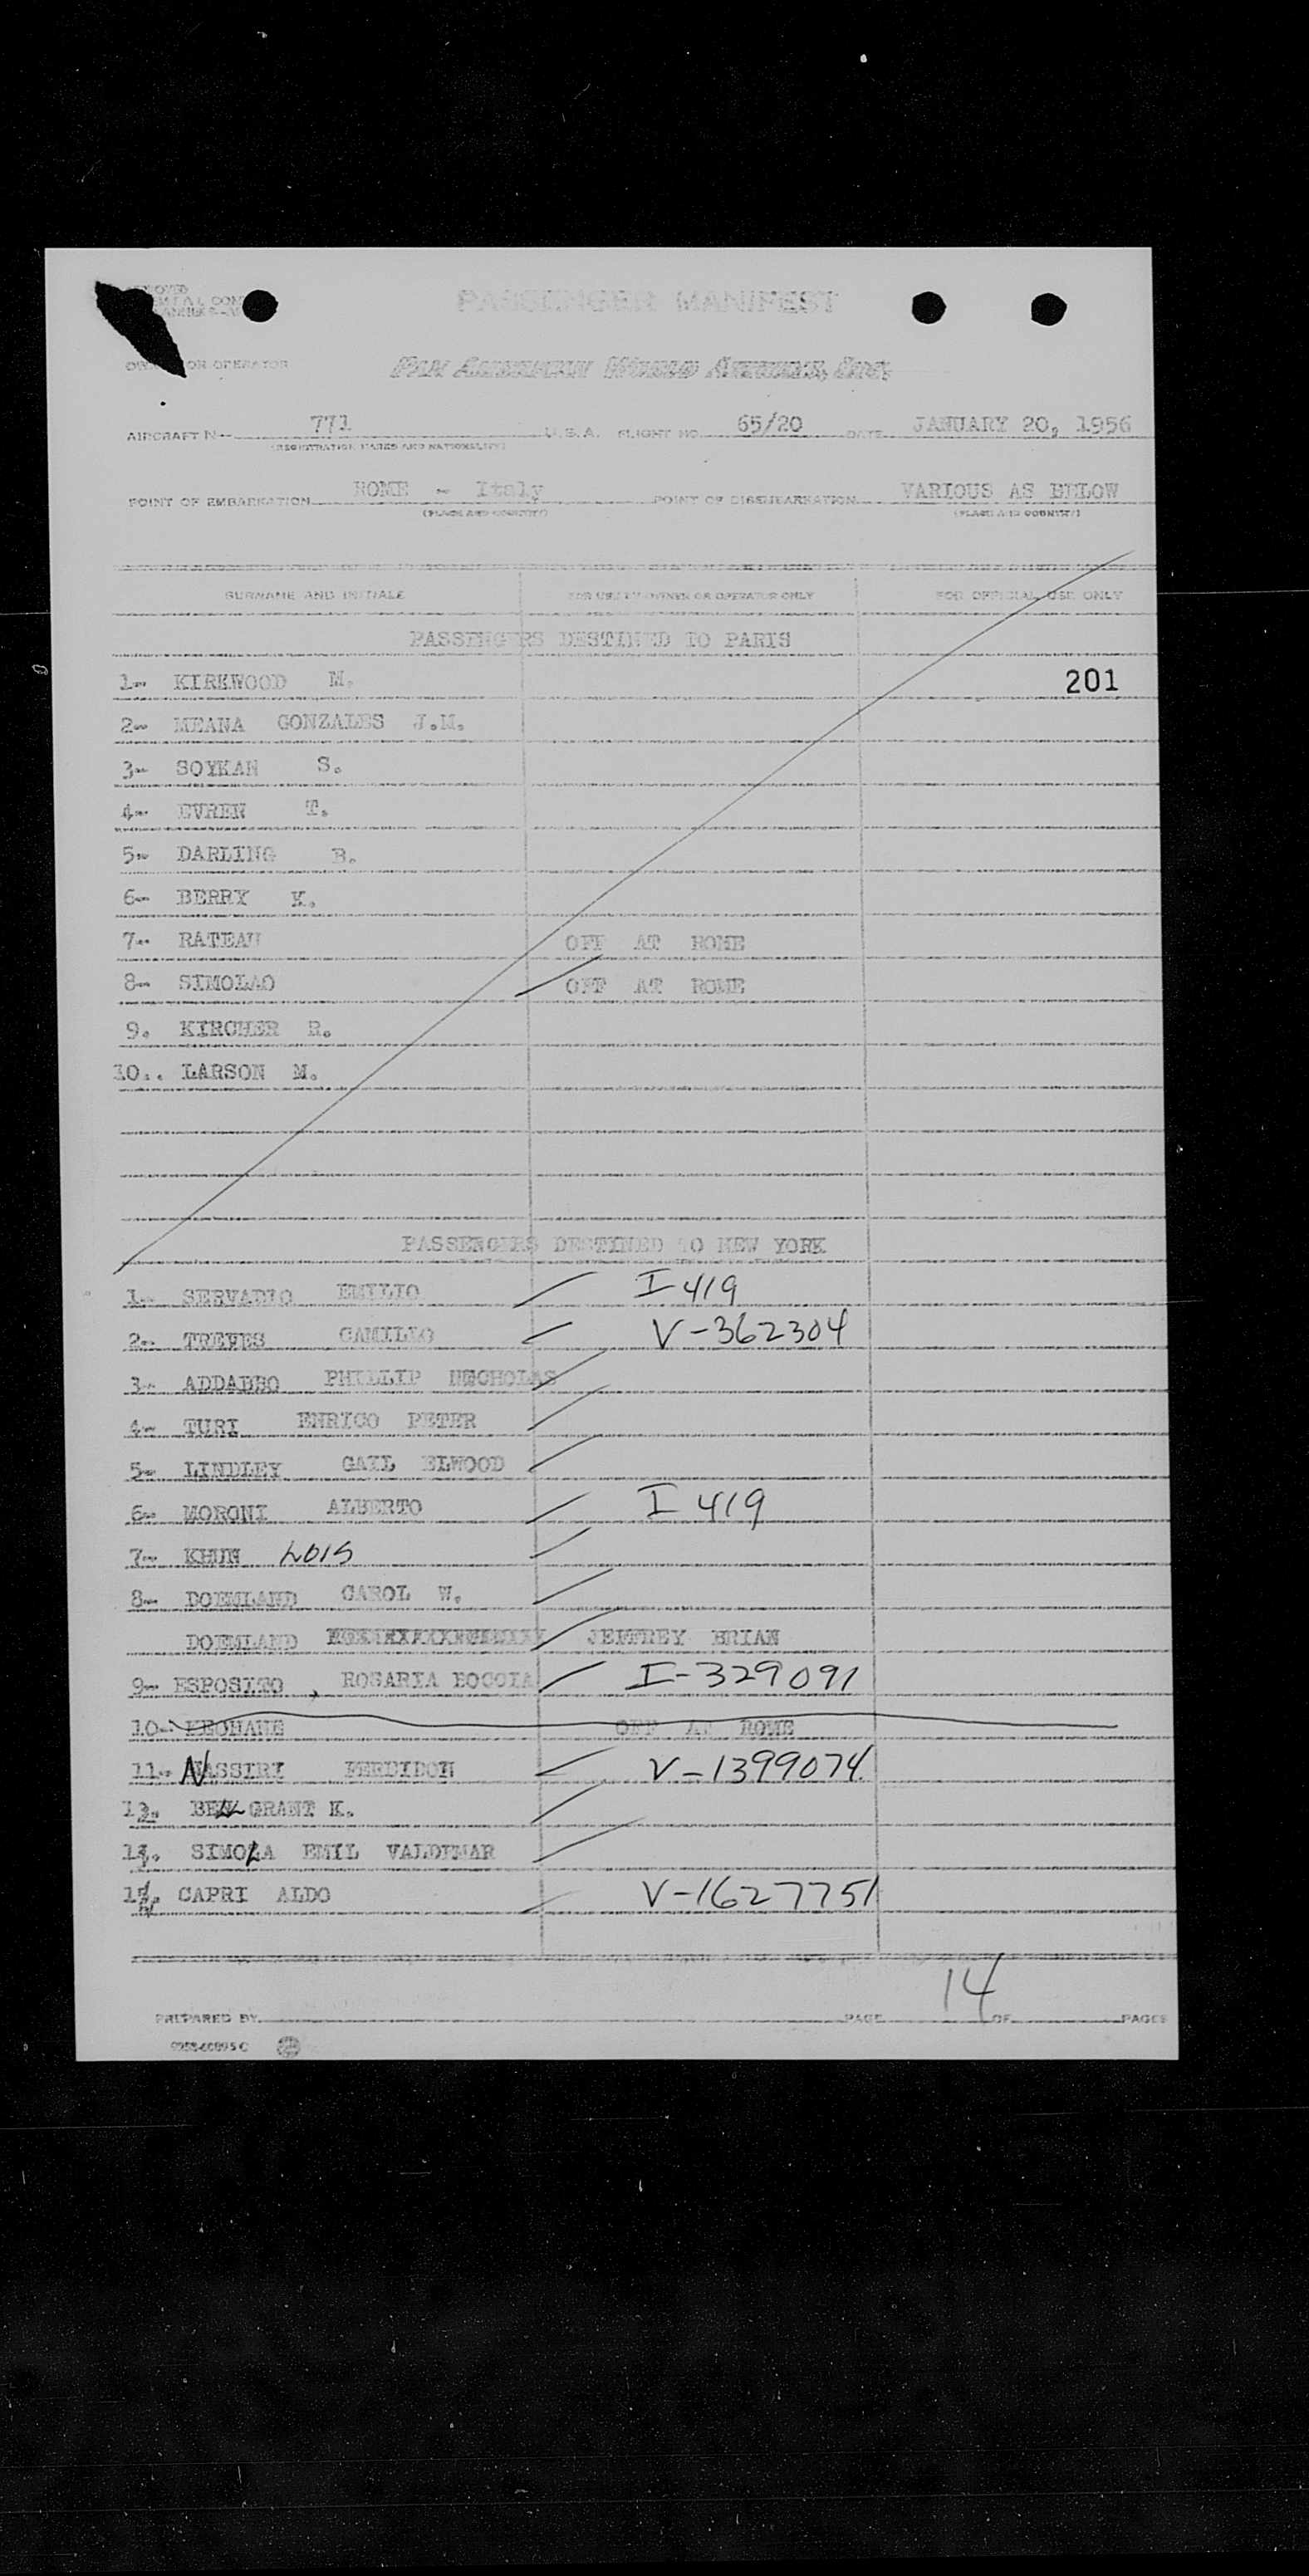 PASSENGER MANIFEST
OR OPERATOR PAN AMERICAN WORLD AIRWAYS, INC.
AIRCRAFT N- 771 U.S.A. FLIGHT NO. 65/20 DATE JANUARY 20, 1956
(REGISTRATION MARKS AND NATIONALITY)
POINT OF EMBARKATION ROME - Italy POINT OF DISEMBARKATION VARIOUS AS BELOW
(PLACE AND COUNTRY) (PLACE AND COUNTRY)
SURNAME AND INITIALS FOR USE BY OWNER OR OPERATOR ONLY FOR OFFICIAL USE ONLY
PASSENGERS DESTINED TO PARIS
1- KIRKWOOD M. 201
2- MEANA GONZALES J.M.
3- SOYKAN S.
4- EVREN T.
5- DARLING B.
6- BERRY K.
7- RATEAU OFF AT ROME
8- SIMOLAO OFF AT ROME
9. KIRCHER R.
10.. LARSON M.
PASSENGERS DESTINED TO NEW YORK
1- SERVADIO EMILIO I 419
2- TREVES CAMILLO V-362304
3- ADDABBO PHILLIP NICHOLAS
4- TURI ENRICO PETER
5- LINDLEY GAIL ELWOOD
6- MORONI ALBERTO I 419
7- KHUN LOIS
8- DOEMLAND CAROL W.
DOEMLAND JEFFREY BRIAN
9- ESPOSITO, ROSARIA BOCCIA I-329091
10- KEOHANE OFF AT ROME
11- NASSIRI FEREIDON V-1399074
BEN GRANT K.
SIMOLA EMIL VALDEMAR
CAPRI ALDO V-1627751
14
PREPARED BY PAGE OF PAGES